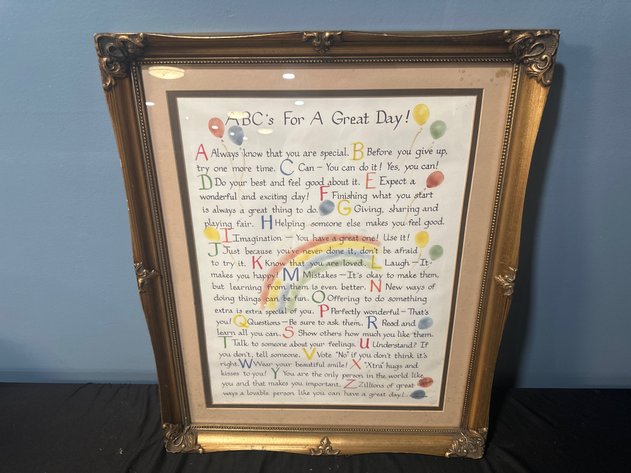 ABC's For A Great Day!
A Always know that you are special. B Before you give up,
try one more time. C Can - You can do it! Yes, you can!
D Do your best and feel good about it. E Expect a
wonderful and exciting day! F Finishing what you start
is always a great thing to do. G Giving, sharing and
playing fair. H Helping someone else makes you feel good.
I Imagination - You have a great one! Use it!
J Just because you've never done it, don't be afraid
to try it. K Know that you are loved. L Laugh - It
makes you happy! M Mistakes - It's okay to make them,
but learning from them is even better. N New ways of
doing things can be fun. O Offering to do something
extra is extra special of you. P Perfectly wonderful - That's
you! Q Questions - Be sure to ask them. R Read and
learn all you can. S Show others how much you like them.
T Talk to someone about your feelings. U Understand? If
you don't, tell someone. V Vote "No" if you don't think it's
right. W Wear your beautiful smile! X "Xtra" hugs and
kisses to you! Y You are the only person in the world like
you and that makes you important. Z Zillions of great
ways a lovable person like you can have a great day!